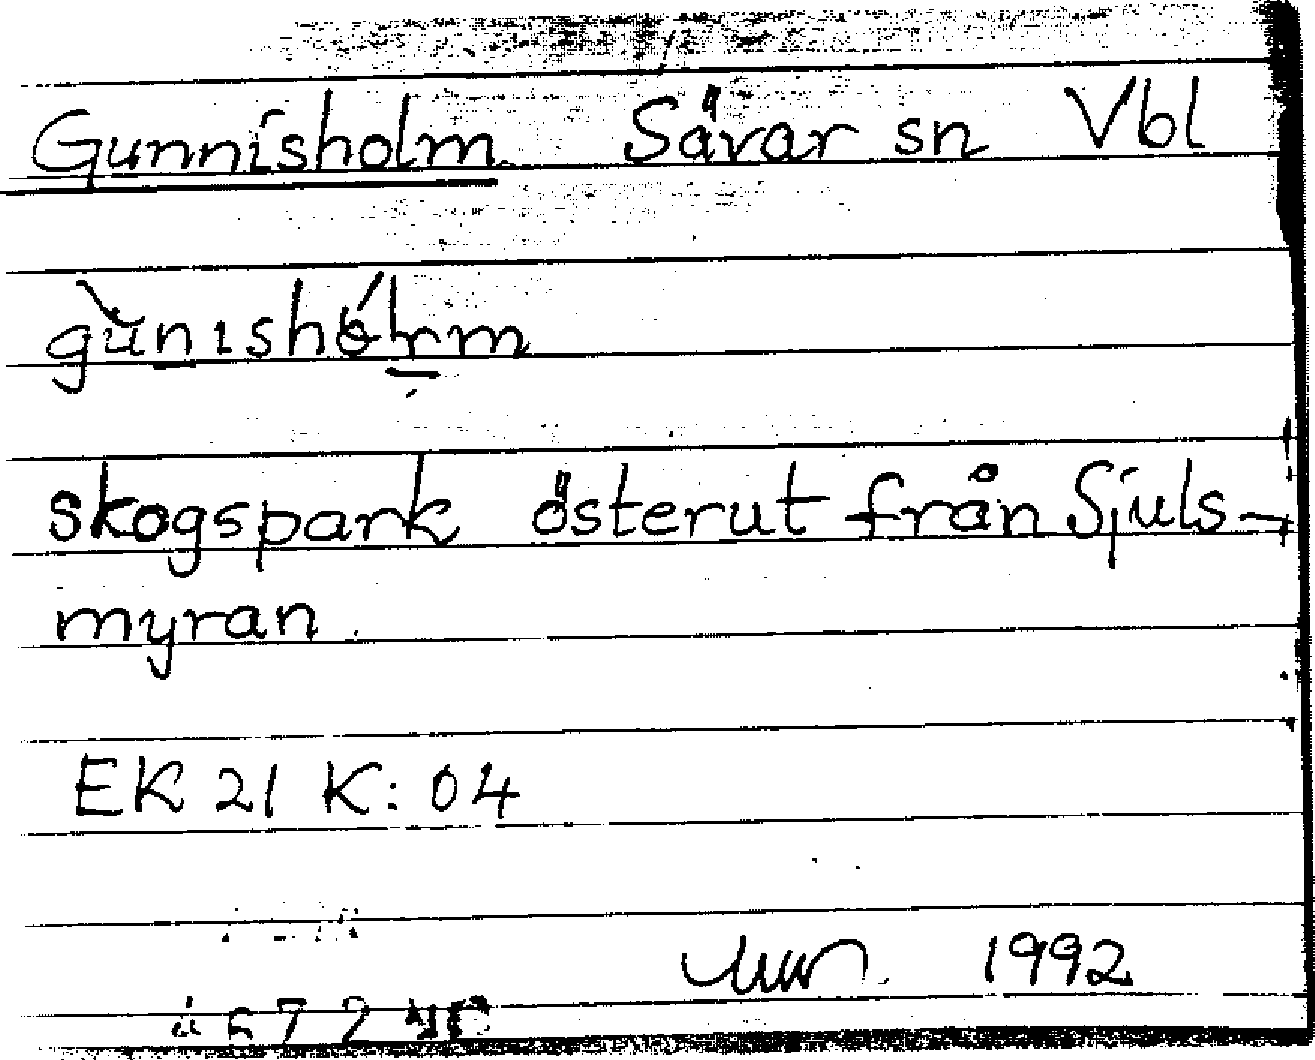 Gunnisholm Sävar sn Vbl
gùnishólm
skogspark österut från Sjuls-
myran.
EK 21 K: 04
1992